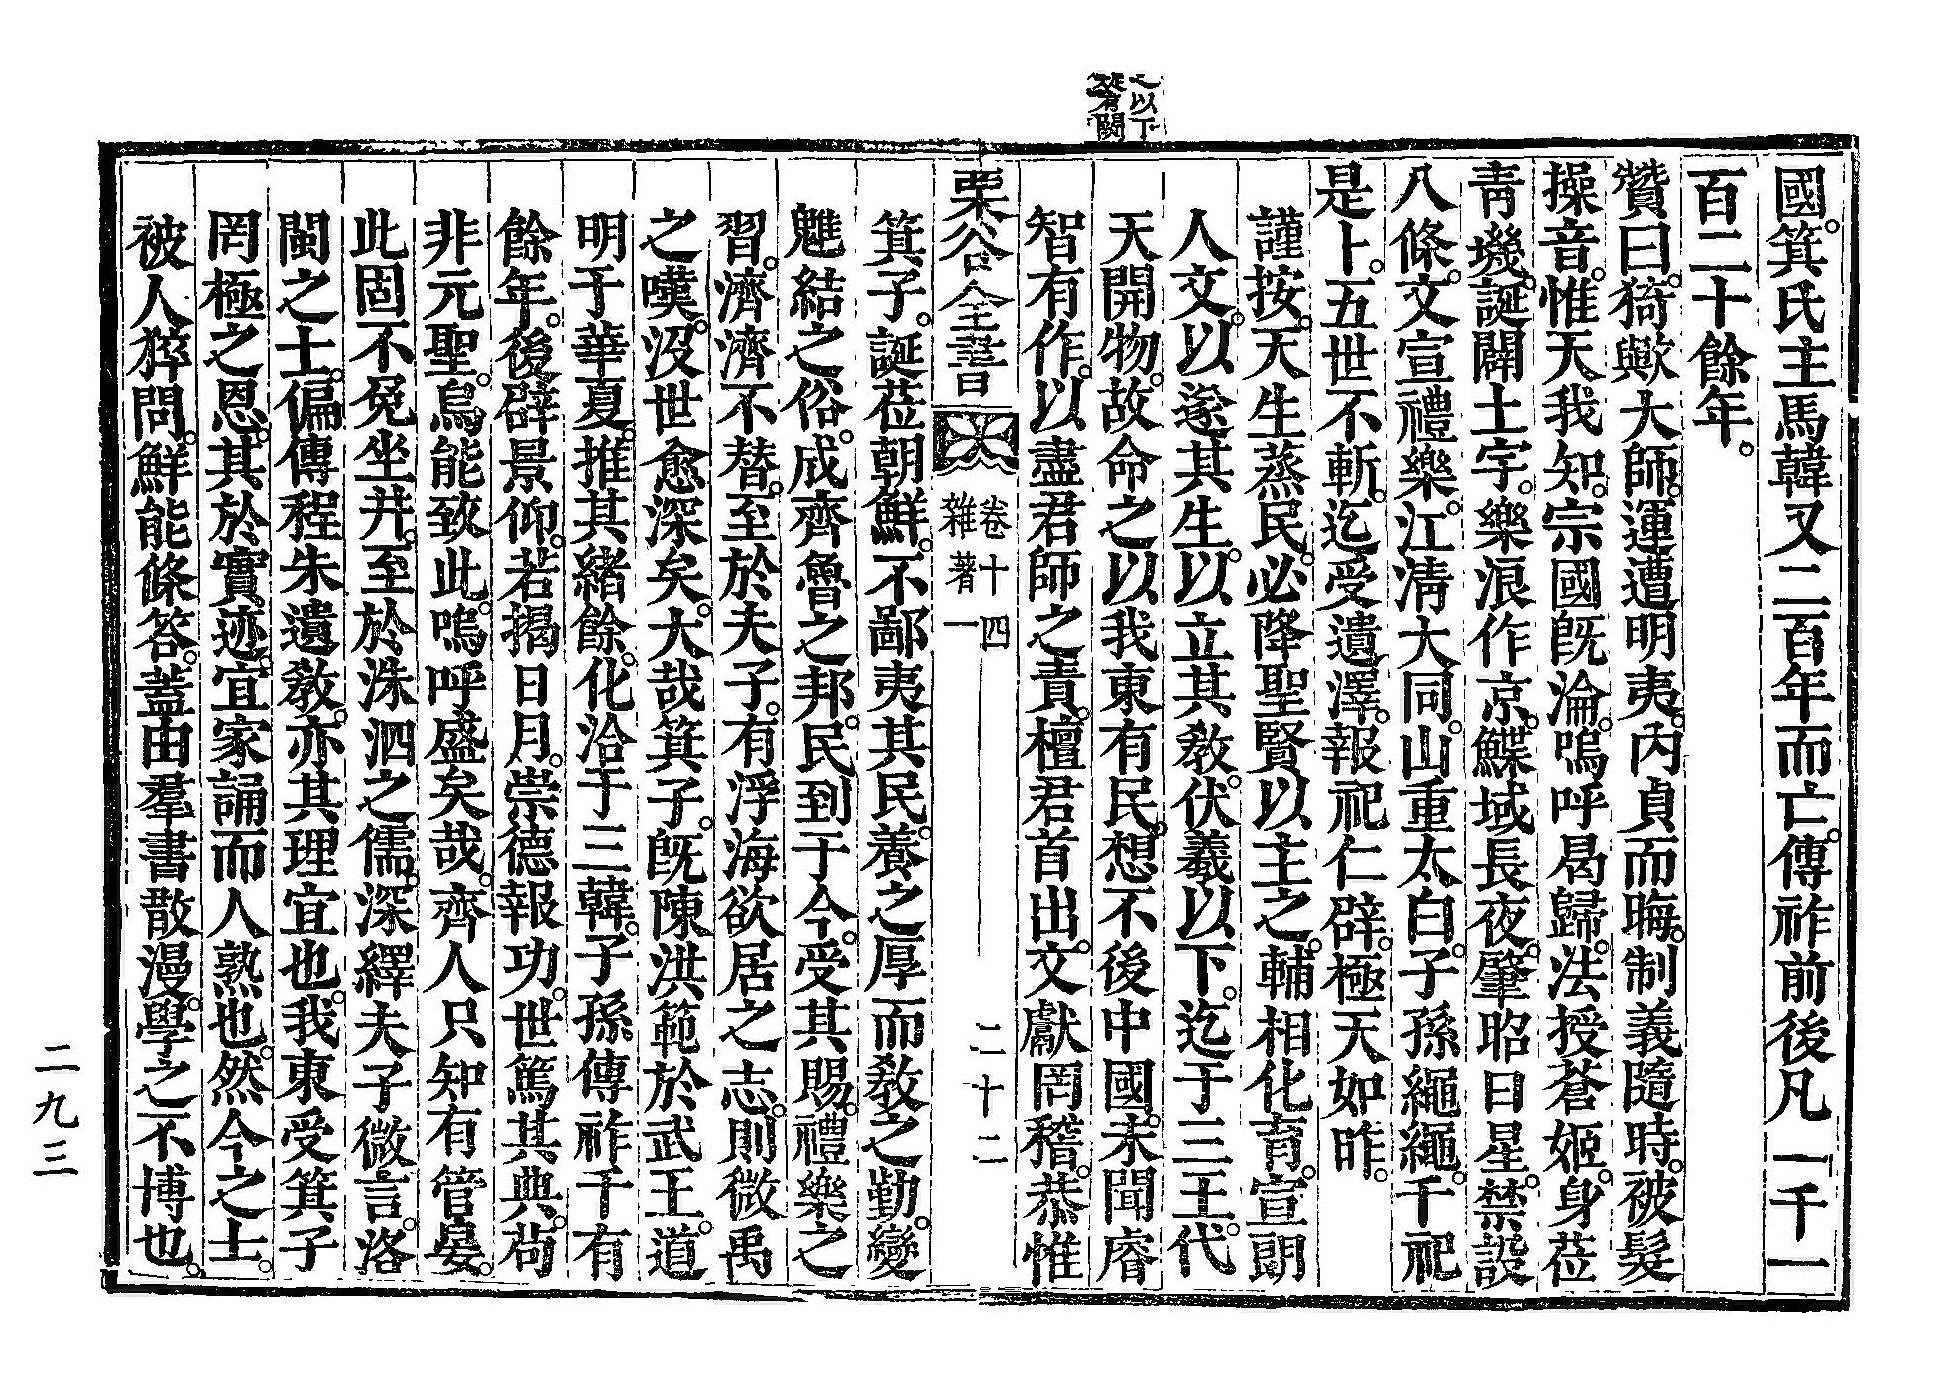 之以下
疑有闕
國。箕氏主馬韓又二百年而亡。傳祚前後凡一千一
百二十餘年。
贊曰。猗歟大師。運遭明夷。內貞而晦。制義隨時。被髮
操音。惟天我知。宗國旣淪。嗚呼曷歸。法授蒼姬。身莅
靑墟。誕闢土宇。樂浪作京。鰈域長夜。肇昭日星。禁設
八條。文宣禮樂。江淸大同。山重太白。子孫繩繩。千祀
是卜。五世不斬。迄受遺澤。報祀仁辟。極天如昨。
謹按。天生蒸民。必降聖賢以主之。輔相化育。宣朗
人文。以遂其生。以立其敎。伏羲以下。迄于三王。代
天開物。故命之以我東有民。想不後中國。未聞睿
智有作。以盡君師之責。檀君首出。文獻罔稽。恭惟
栗谷全書
卷十四
雜著一
二十二
箕子。誕莅朝鮮。不鄙夷其民。養之厚而敎之勤。變
魋結之俗。成齊魯之邦。民到于今。受其賜。禮樂之
習。濟濟不替。至於夫子。有浮海欲居之志。則微禹
之嘆。沒世愈深矣。大哉箕子。旣陳洪範於武王。道
明于華夏。推其緖餘。化洽于三韓。子孫傳祚千有
餘年。後辟景仰。若揭日月。崇德報功。世篤其典。苟
非元聖。烏能致此。嗚呼盛矣哉。齊人只知有管晏。
此固不免坐井。至於洙泗之儒。深繹夫子微言。洛
閩之士。偏傳程朱遺敎。亦其理宜也。我東受箕子
罔極之恩。其於實迹。宜家誦而人熟也。然今之士。
被人猝問。鮮能條答。蓋由羣書散漫。學之不博也。
二九三